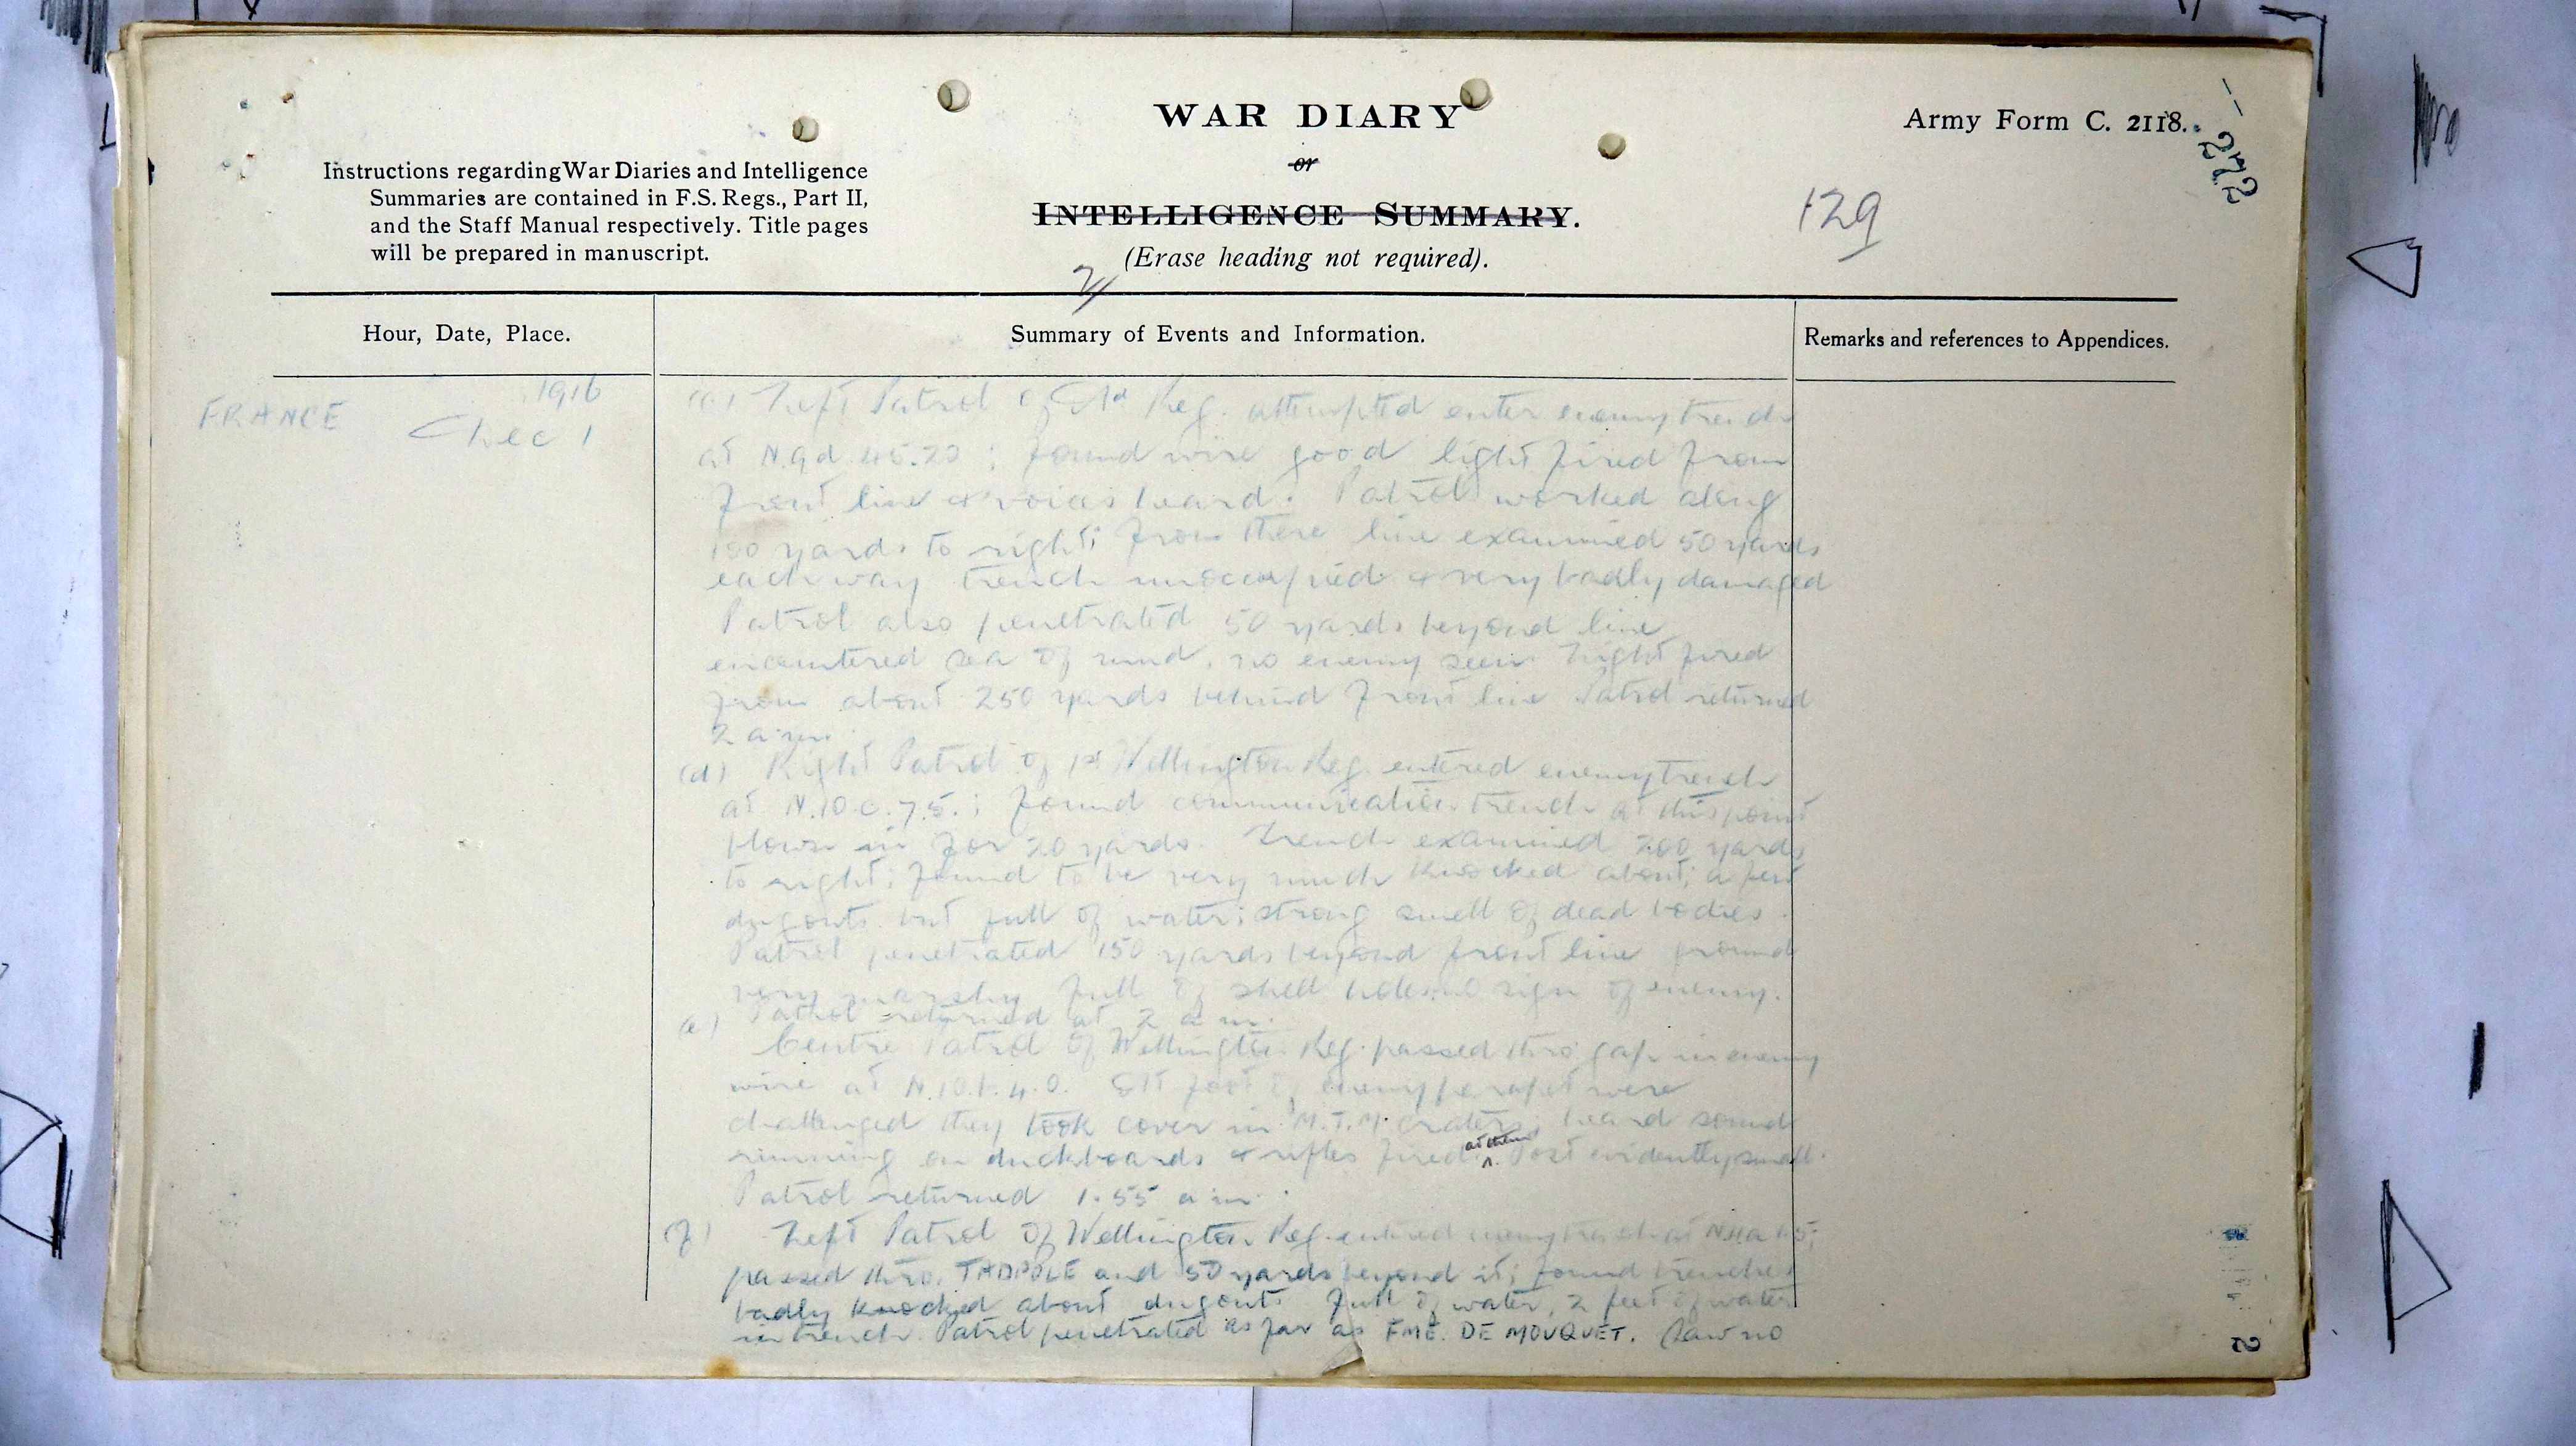 WAR DIARY
or
INTELLIGENCE SUMMARY.
(Erase heading not required).
Army Form C. 2118.
272
129
Instructions regarding War Diaries and Intelligence
Summaries are contained in F.S. Regs., Part II,
and the Staff Manual respectively. Title pages
will be prepared in manuscript.
2/
Hour, Date, Place.
Summary of Events and Information.
Remarks and references to Appendices.
1916
FRANCE Dec 1
Left Patrol of Reg. attempted enter enemy trench
at N.9.d.45.20 ; found wire good light fired from
front line & voices heard. Patrol worked along
100 yards to right; from there line examined 50 yards
each way trench unoccupied & very badly damaged
Patrol also penetrated 50 yards beyond line
encountered sea of mud, no enemy seen Light fired
from about 250 yards behind front line Patrol returned
2 a.m.
(d) Right Patrol of 1st Wellington Reg. entered enemy trench
at N.10.c.7.5. ; found communication trench at this point
blown in for 20 yards. Trench examined 200 yards
to right; found to be very much knocked about; a few
dugouts but full of water; strong smell of dead bodies.
Patrol penetrated 150 yards beyond front line ground
very marshy full of shell holes no sign of enemy.
Patrol returned at 2 a.m.
(e) Centre Patrol of Wellington Reg. passed thro' gap in enemy
wire at N.10.b.4.0. enemy parapet were
challenged they took cover in M.T.M. craters; heard sound
running on duckboards & rifles fired at them. Post evidently small.
Patrol returned 1.55 a.m.
(f) Left Patrol of Wellington Reg. entered enemy trench at
passed thro. TADPOLE and 50 yards beyond it; found trenches
badly knocked about dugouts full of water, 2 feet of water
in trench. Patrol penetrated as far as FME. DE MOUQUET. Saw no
2